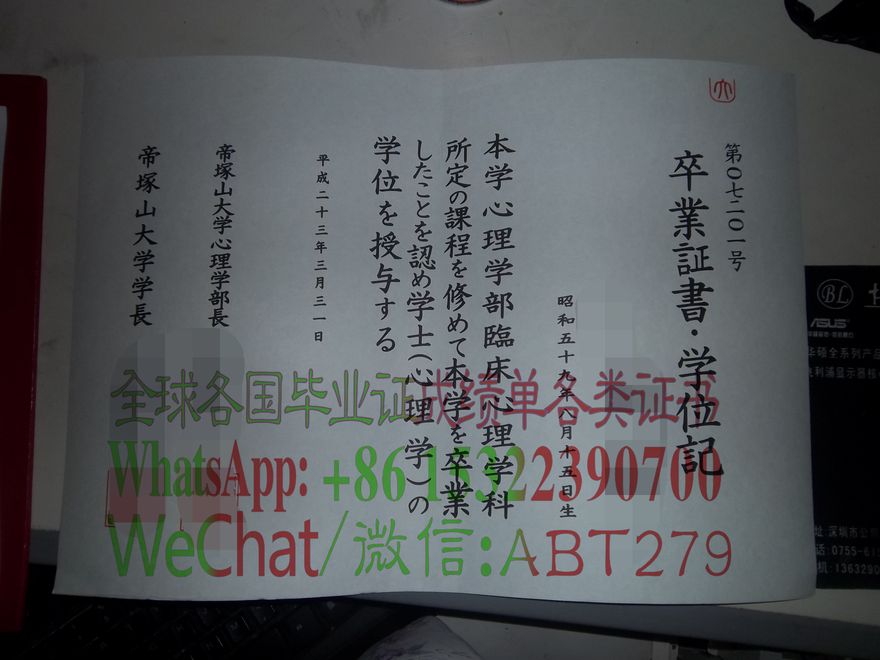 第〇七二〇一号
卒業証書・学位記
昭和五十九年八月十五日生
本学心理学部臨床心理学科
所定の課程を修めて本学を卒業
したことを認め学士（心理学）の
学位を授与する
平成二十三年三月三一日
帝塚山大学心理学部長
帝塚山大学学長
全球各国毕业证成绩单各类证书
WhatsApp: +86 15322390700
WeChat/微信:ABT279
BL
ASUS
华硕全系列产品
址 深圳市
话:0755-61
机:1363290